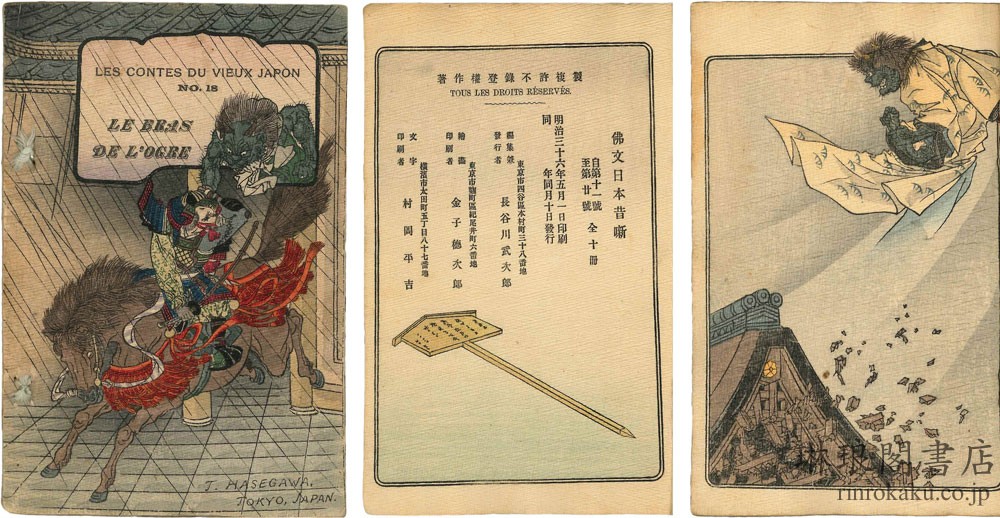 LES CONTES DU VIEUX JAPON
NO. 18
LE BRAS
DE L'OGRE
T. HASEGAWA,
TOKYO, JAPAN.
製複許不錄登權作著
TOUS LES DROITS RÉSERVÉS.
佛文日本昔噺
自第十一號
至第廿號
全十冊
明治三十六年五月一日印刷
同年同月十日發行
編集兼
發行者
東京市四谷區本村町三十八番地
長谷川武次郎
繪畵
印刷者
東京市麹町區紀尾井町六番地
金子德次郎
文字
印刷者
橫濱市太田町五丁目八十七番地
村岡平吉
琳琅閣書店
rinrokaku.co.jp